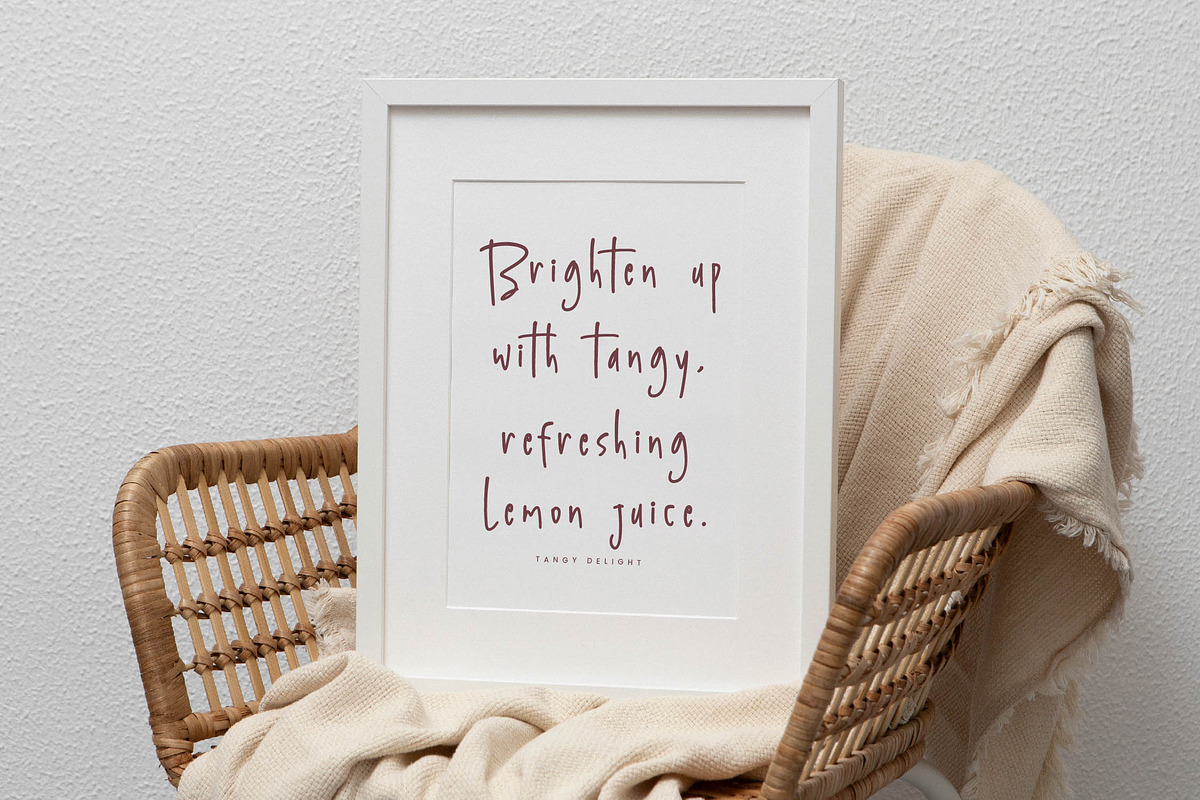 Brighten up
with tangy,
refreshing
Lemon juice.
TANGY DELIGHT